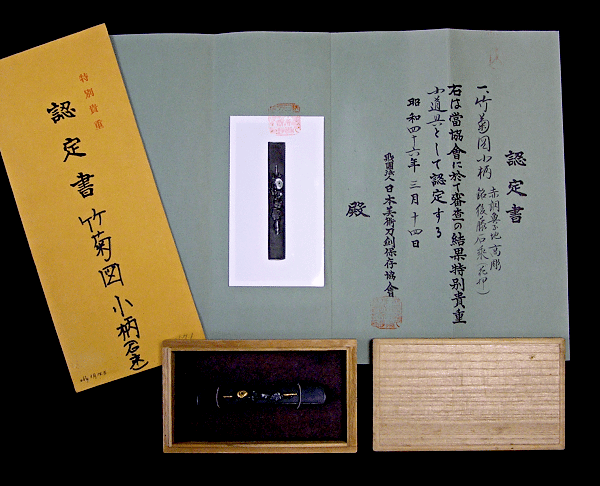 特別貴重
認定書
竹菊図
小柄
認定書
一、竹菊図小柄
赤銅魚子地高彫
銘後藤石乗(花押)
右は當協會に於て審査の結果特別貴重
小道具として認定する
昭和四十六年三月十四日
財團法人日本美術刀剣保存協會
殿